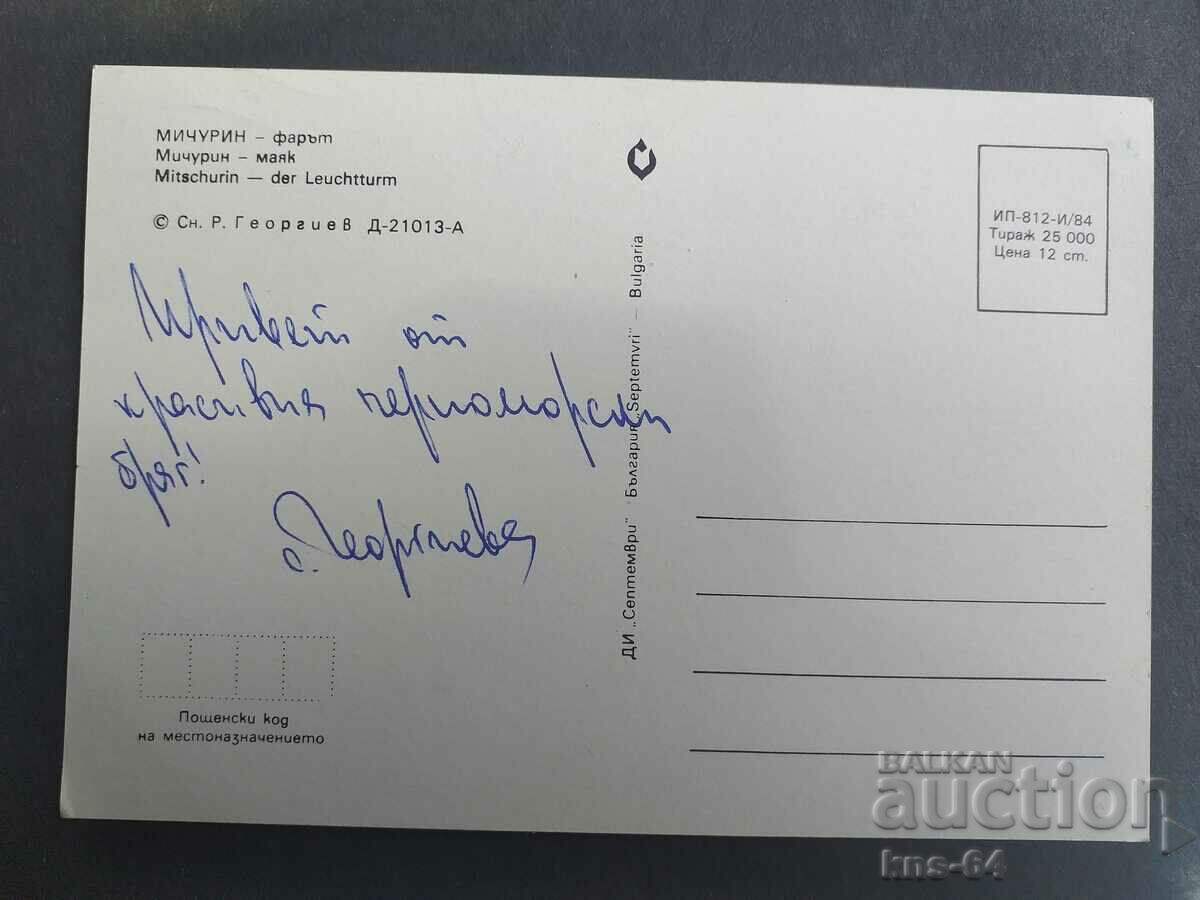 МИЧУРИН – фарът
Мичурин – маяк
Mitschurin — der Leuchtturm
© Сн. Р. Георгиев Д-21013-А
Привет от
красивия черноморски
бряг!
С. Георгиева
Пощенски код
на местоназначението
ДИ „Септември" България „Septemvri" – Bulgaria
ИП-812-И/84
Тираж 25 000
Цена 12 ст.
BALKAN
auction
kns-64